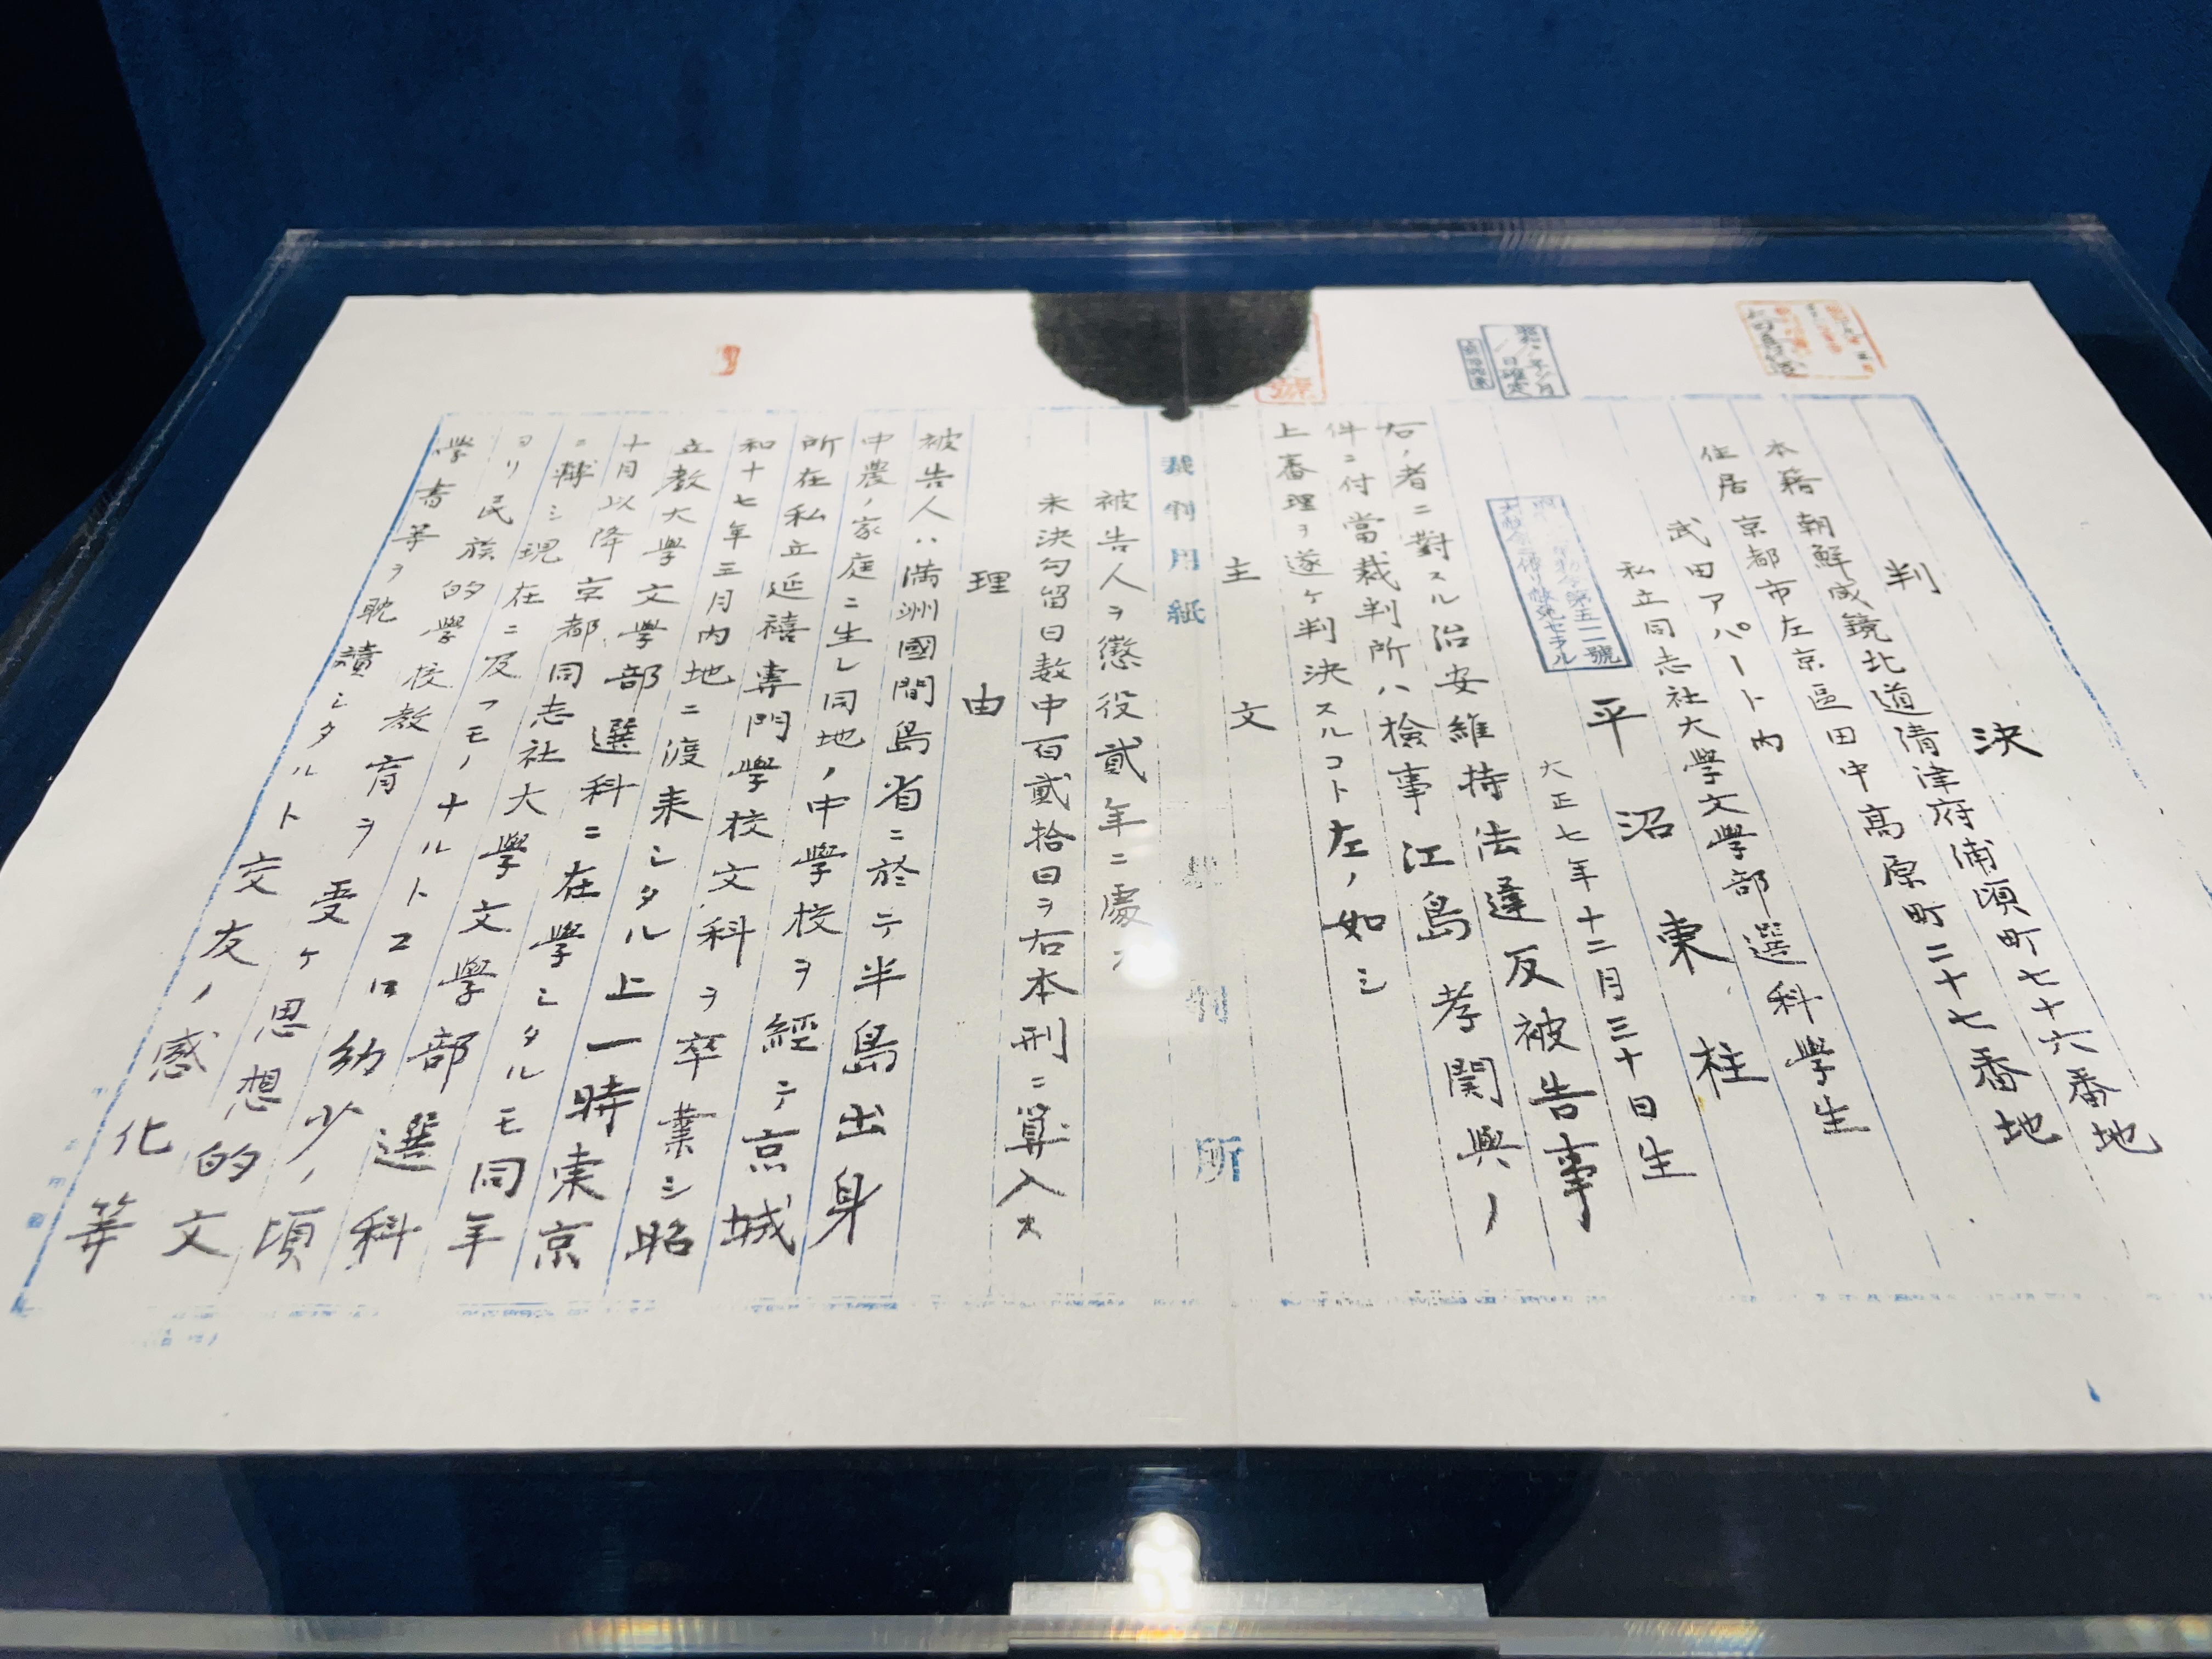 判決
本籍 朝鮮咸鏡北道清津府浦項町七十六番地
住居 京都市左京區田中高原町二十七番地
武田アパート内
私立同志社大學文學部選科學生
平沼東柱
大正七年十二月三十日生
右ノ者ニ對スル治安維持法違反被告事
件ニ付當裁判所ハ檢事江島孝関與ノ
上審理ヲ遂ケ判決スルコト左ノ如シ
主文
裁判用紙
判所
被告人ヲ懲役貳年ニ處ス
未決勾留日数中百貳拾日ヲ右本刑ニ算入ス
理由
被告人ハ満洲國間島省ニ於テ半島出身
中農ノ家庭ニ生レ同地ノ中學校ヲ經テ京城
所在私立延禧專門學校文科ヲ卒業シ昭
和十七年三月内地ニ渡来シタル上一時東京
立教大學文學部選科ニ在學シタルモ同年
十月以降京都同志社大學文學部選科
ニ轉シ現在ニ及フモノナルトコロ幼少ノ頃
ヨリ民族的學校教育ヲ受ケ思想的文
學書等ヲ耽讀シタルト交友ノ感化等